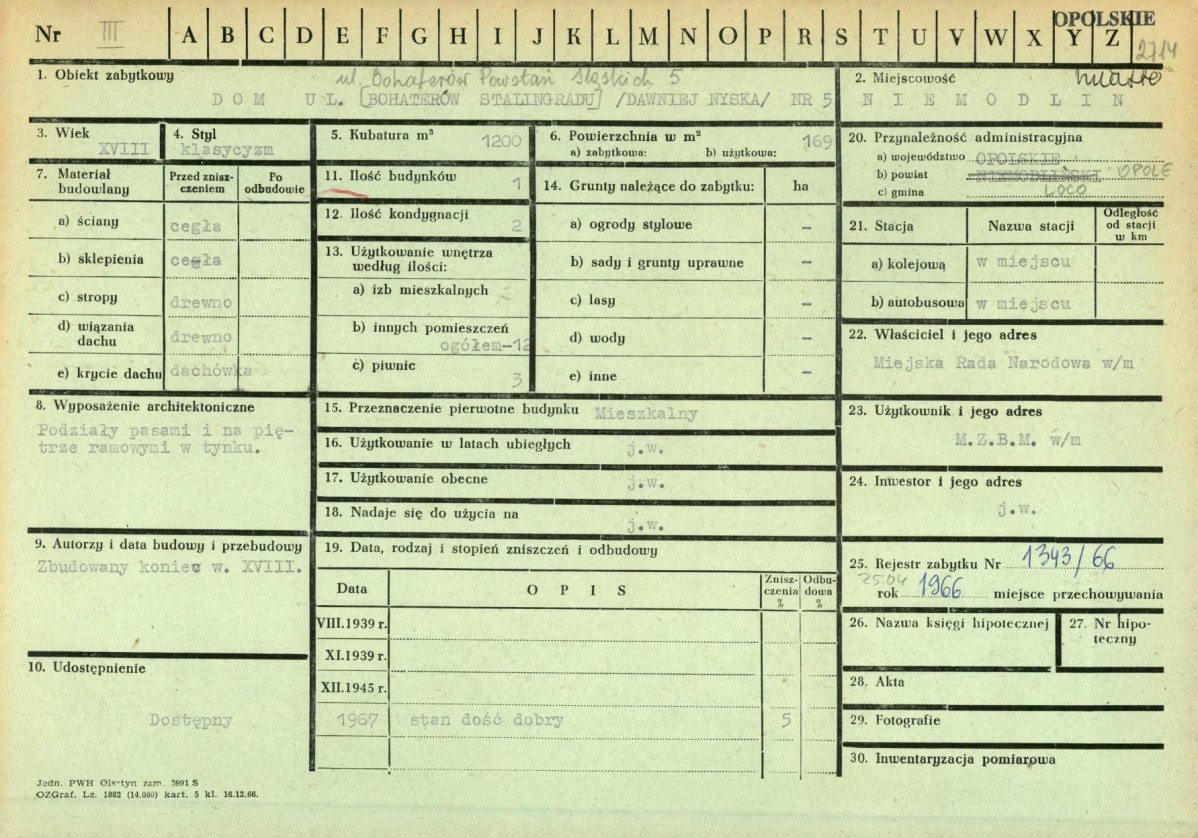 Nr III A B C D E F G H I J K L M N O P R S T U V W X Y Z OPOLSKIE
2714
1. Obiekt zabytkowy
ul. Bohaterów Powstań Śląskich 5
DOM UL. [BOHATERÓW STALINGRADU] /DAWNIEJ NYSKA/ NR 5
2. Miejscowość miasto
NIEMODLIN
3. Wiek
XVIII
4. Styl
klasycyzm
5. Kubatura m³
1200
6. Powierzchnia w m²
a) zabytkowa: b) użytkowa: 169
7. Materiał budowlany
Przed zniszczeniem
Po odbudowie
a) ściany cegła
b) sklepienia cegła
c) stropy drewno
d) wiązania dachu drewno
e) krycie dachu dachówka
8. Wyposażenie architektoniczne
Podziały pasami i na pię-
trze ramowymi w tynku.
9. Autorzy i data budowy i przebudowy
Zbudowany koniec w. XVIII.
10. Udostępnienie
Dostępny
11. Ilość budynków 1
12. Ilość kondygnacji 2
13. Użytkowanie wnętrza
według ilości:
a) izb mieszkalnych
b) innych pomieszczeń
ogółem-12
c) piwnic 3
14. Grunty należące do zabytku: ha
a) ogrody stylowe –
b) sady i grunty uprawne –
c) lasy –
d) wody –
e) inne –
15. Przeznaczenie pierwotne budynku Mieszkalny
16. Użytkowanie w latach ubiegłych j.w.
17. Użytkowanie obecne j.w.
18. Nadaje się do użycia na j.w.
19. Data, rodzaj i stopień zniszczeń i odbudowy
Data OPIS Znisz-
czenia
% Odbu-
dowa
%
VIII.1939 r.
XI.1939 r.
XII.1945 r.
1967 stan dość dobry 5
20. Przynależność administracyjna
a) województwo OPOLSKIE
b) powiat NIEMODLIŃSKI OPOLE
c) gmina LOCO
21. Stacja Nazwa stacji Odległość
od stacji
w km
a) kolejowa w miejscu
b) autobusowa w miejscu
22. Właściciel i jego adres
Miejska Rada Narodowa w/m
23. Użytkownik i jego adres
M.Z.B.M. w/m
24. Inwestor i jego adres
j.w.
25. Rejestr zabytku Nr 1343/66
25.04
rok 1966 miejsce przechowywania
26. Nazwa księgi hipotecznej
27. Nr hipo-
teczny
28. Akta
29. Fotografie
30. Inwentaryzacja pomiarowa
Jedn. PWH Olsztyn zam. 3991 S
OZGraf. Lz. 1882 (14.000) kart. 5 kl. 16.12.66.